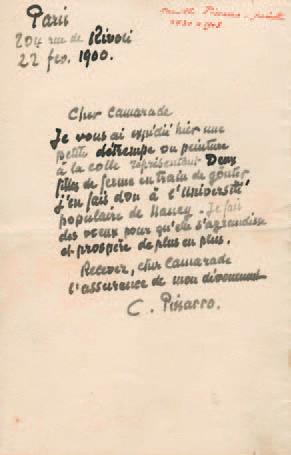 Paris
204 rue de Rivoli
22 fev. 1900.
Camille Pissarro - peintre
1830 - 1903
Cher Camarade
Je vous ai expédié hier une
petite détrempe ou peinture
à la colle représentant Deux
filles de ferme en train de goûter
j'en fais don à l'Université
populaire de Nancy - Je fais
des vœux pour qu'elle s'agrandisse
et prospère de plus en plus.
Recevez, cher Camarade
l'assurance de mon dévouement
C. Pissarro.